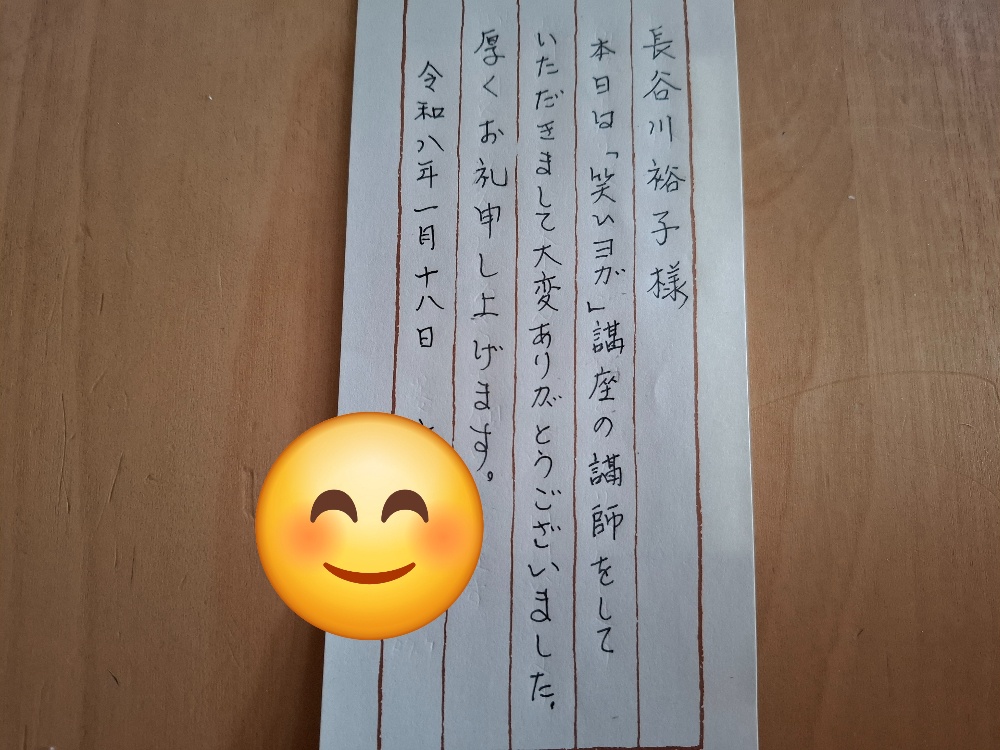 長谷川裕子様
本日は「笑いヨガ」講座の講師をして
いただきまして大変ありがとうございました。
厚くお礼申し上げます。
令和八年一月十八日